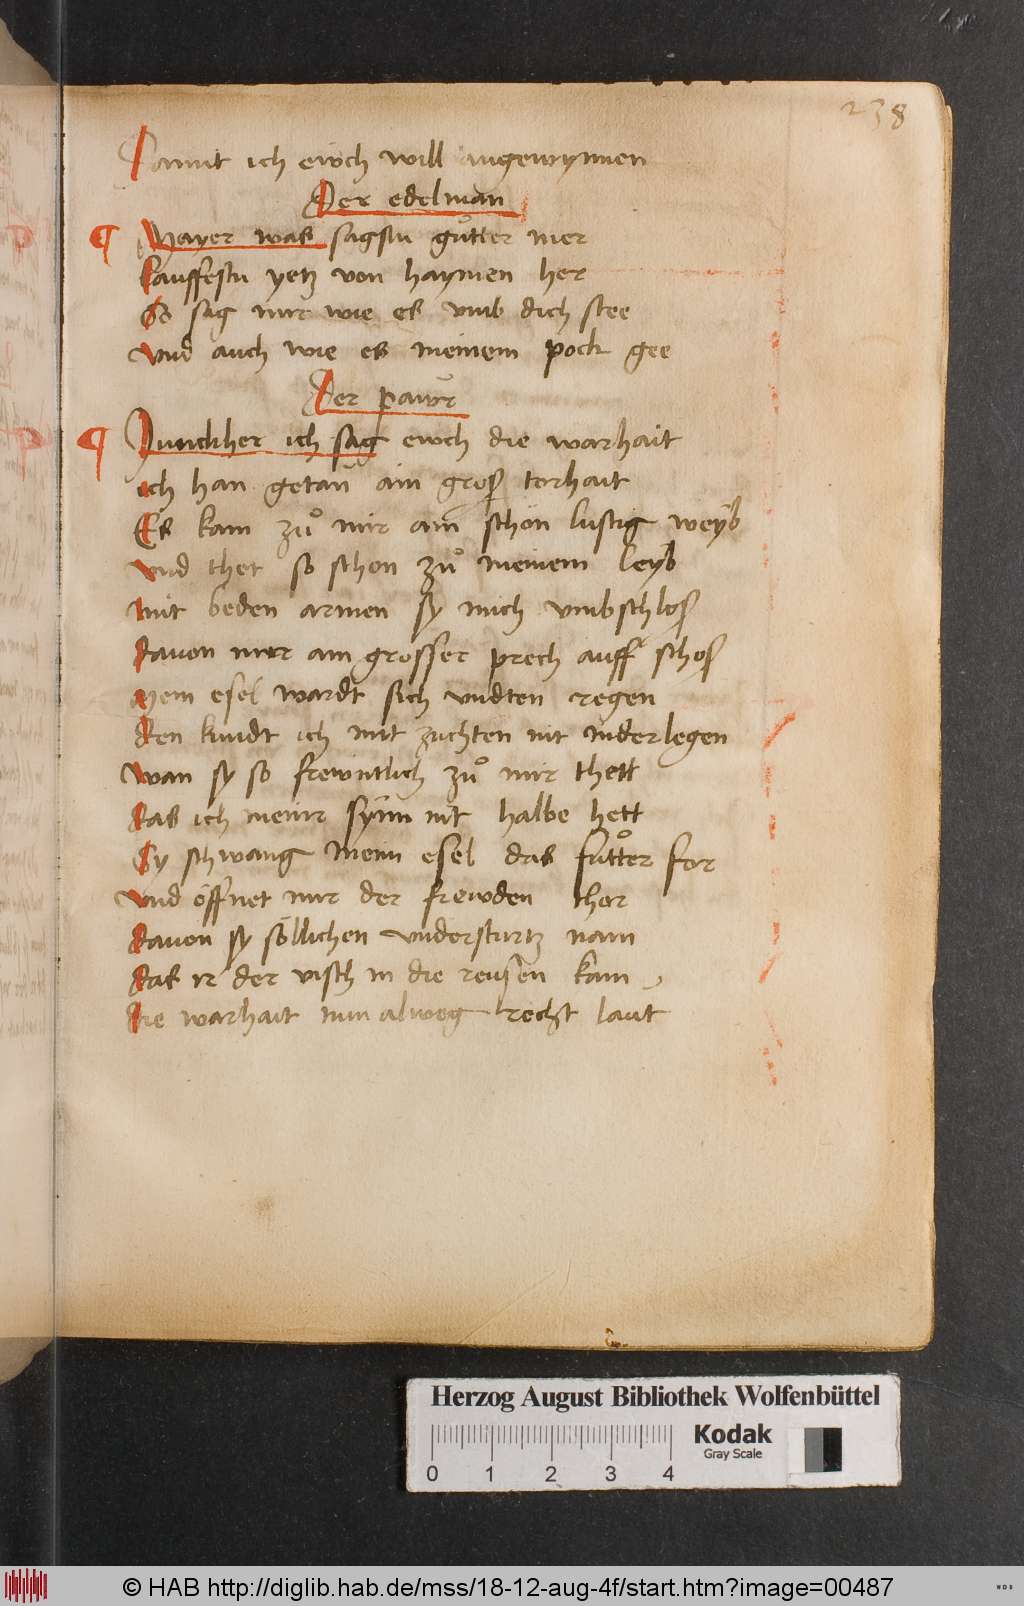 238
Damit ich ewch will angewynnen
Der edelman
Mayer was sagstu gůtter mer
Lauffestu yetz von haymen her
So sag mir wie es vmb dich stee
Vnd auch wie es meinem pock gee
Der pawr
Junckher ich sag ewch die warhait
ich han getan ain groß torhait
Es kam zů mir ain schön lustig weyb
Vnd thet so schon zů meinem leyb
mit beden armen sy mich vmbschloß
Dauon mir ain grosser prech auff schoß
Mein esel wardt sich vndten regen
Den kundt ich mit zuchten nit niderlegen
Wan sy so frewntlich zů mir thett
Das ich meiner synn nit halbe hett
Sy schwang mein esel das fůtter for
Vnd öffnet mir der frewden thor
Dauon sy söllichen vndersturtz nam
Das ir der visch in die reusen kam
Die warhait nun alweg recht laut
Herzog August Bibliothek Wolfenbüttel
0 1 2 3 4
Kodak
Gray Scale
© HAB http://diglib.hab.de/mss/18-12-aug-4f/start.htm?image=00487